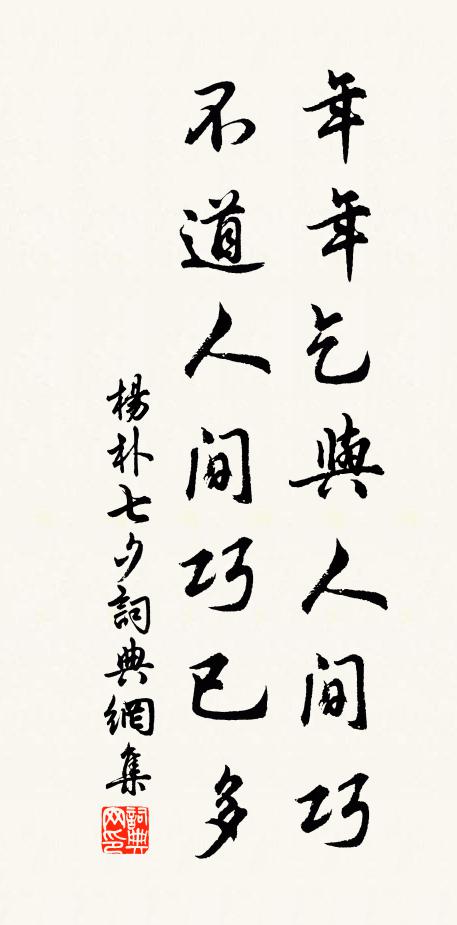 年年乞與人間巧
不道人間巧已多
楊朴七夕詞典網集
詞典网印